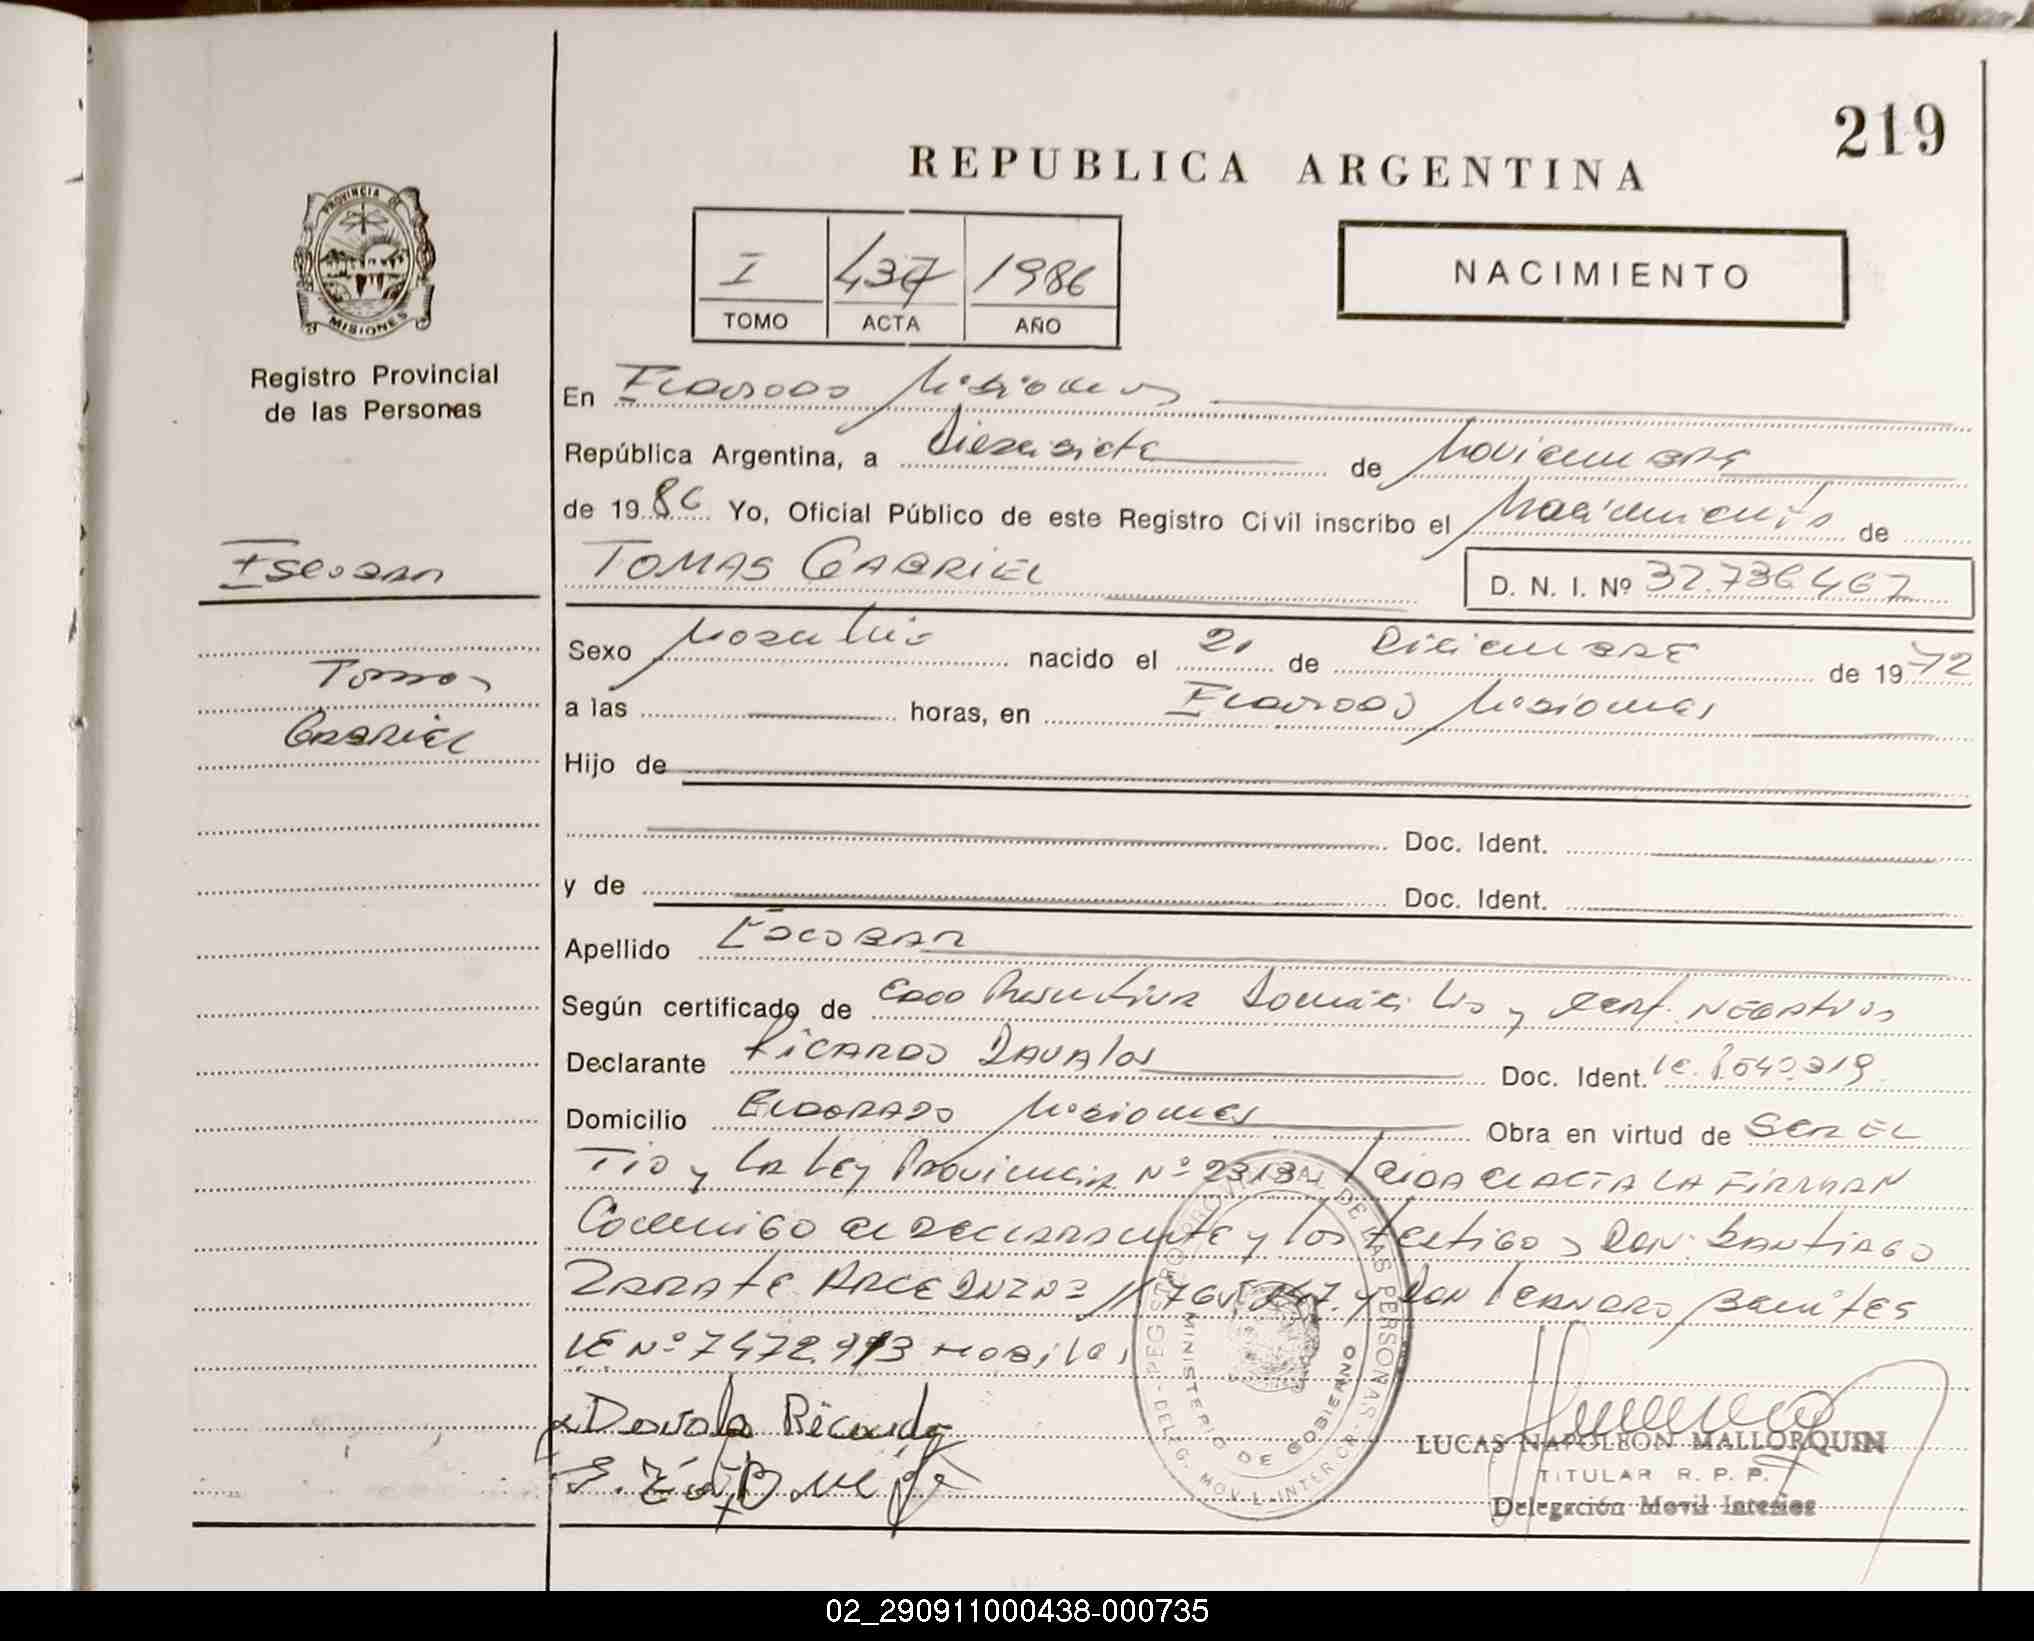 219
REPUBLICA ARGENTINA
PROVINCIA DE
MISIONES
Registro Provincial
de las Personas
I 437 1986
TOMO ACTA AÑO
NACIMIENTO
En ELDORADO Misiones
República Argentina, a diecisiete de Noviembre
de 1986 Yo, Oficial Público de este Registro Civil inscribo el Nacimiento de
TOMAS GABRIEL
D. N. I. Nº 32.736467
ESCOBAR
Tomas
GABRIEL
Sexo Masculino nacido el 21 de Diciembre de 1972
a las horas, en ELDORADO Misiones
Hijo de
Doc. Ident.
y de Doc. Ident.
Apellido ESCOBAR
Según certificado de EDAD Presuntiva Domicilio y Cert. NEGATIVO
Declarante RICARDO DAVALOS Doc. Ident. LE.
Domicilio ELDORADO Misiones Obra en virtud de SER EL
TIO y LA LEY Provincial Nº 2313 LEIDA EL ACTA LA FIRMAN
Conmigo el DECLARANTE y los testigos DON: SANTIAGO
ZARATE ARCE y DON BENITES
LE Nº 7472.913 HABILES
Davalo Ricardo
REGISTRO PROVINCIAL DE LAS PERSONAS
MINISTERIO DE GOBIERNO
LUCAS NAPOLEON MALLORQUIN
TITULAR R. P. P.
Delegación Movil Interior
02_290911000438-000735